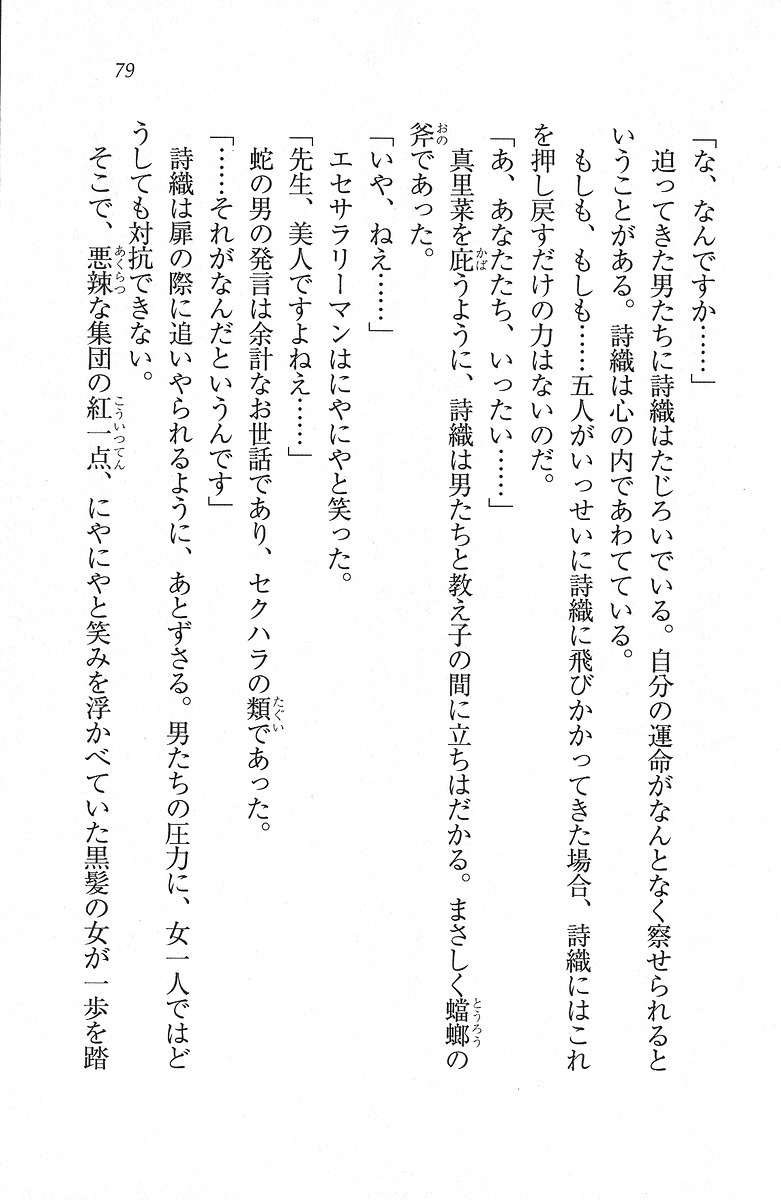 79
「な、なんですか……」
　迫ってきた男たちに詩織はたじろいでいる。自分の運命がなんとなく察せられると
いうことがある。詩織は心の内であわてている。
　もしも、もしも……五人がいっせいに詩織に飛びかかってきた場合、詩織にはこれ
を押し戻すだけの力はないのだ。
「あ、あなたたち、いったい……」
　真里菜を庇うように、詩織は男たちと教え子の間に立ちはだかる。まさしく蟷螂の
斧であった。
「いや、ねえ……」
　エセサラリーマンはにやにやと笑った。
「先生、美人ですよねえ……」
　蛇の男の発言は余計なお世話であり、セクハラの類であった。
「……それがなんだというんです」
　詩織は扉の際に追いやられるように、あとずさる。男たちの圧力に、女一人ではど
うしても対抗できない。
　そこで、悪辣な集団の紅一点、にやにやと笑みを浮かべていた黒髪の女が一歩を踏